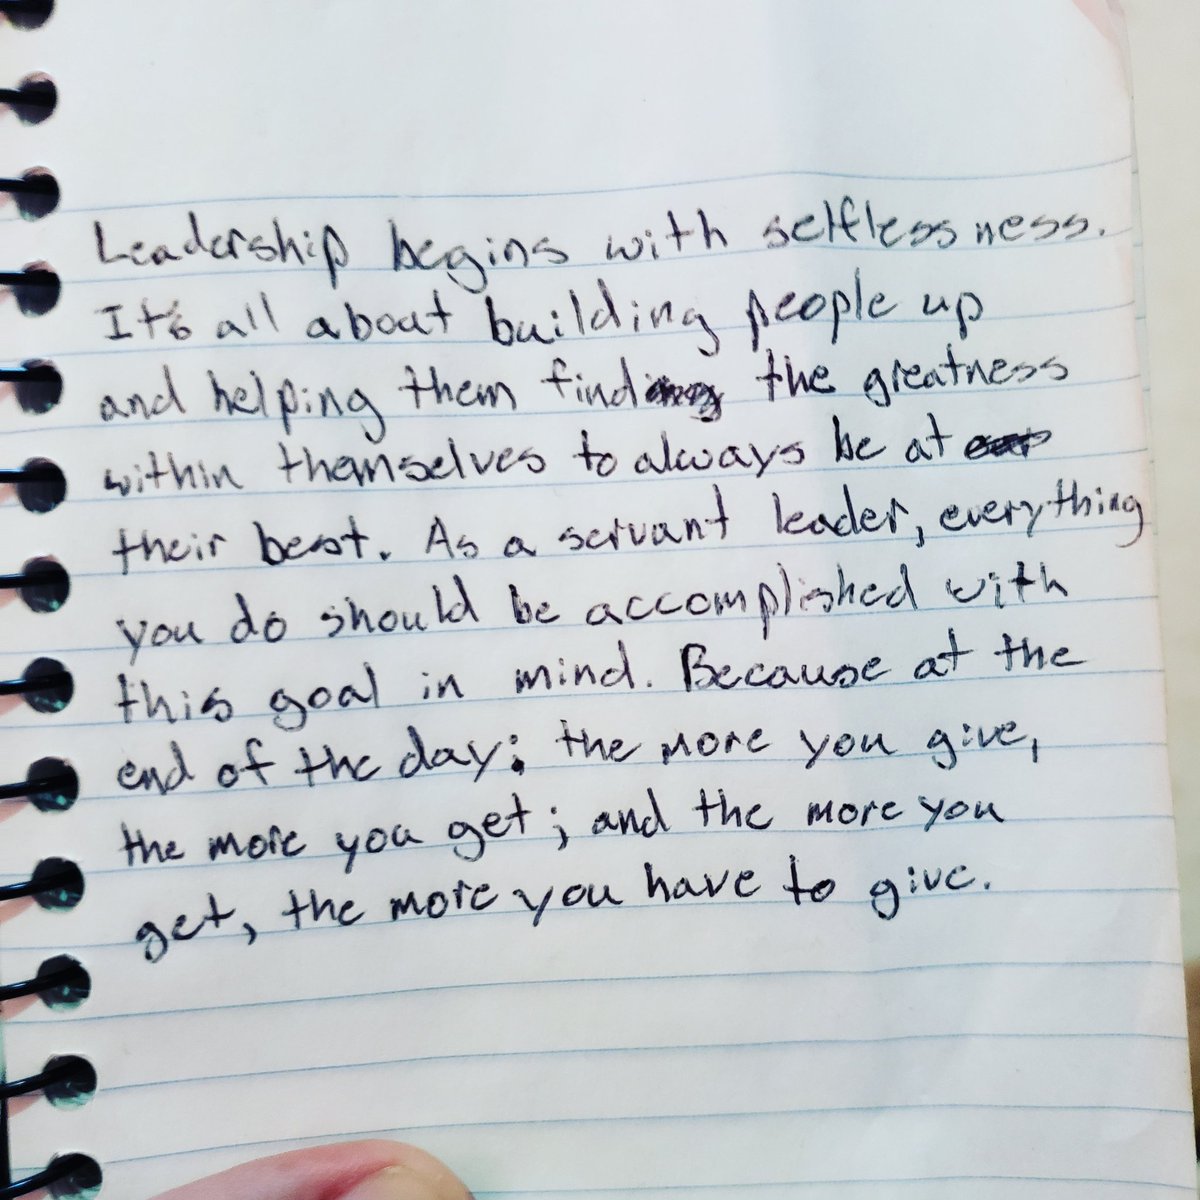 Leadership begins with selflessness.
It's all about building people up
and helping them find the greatness
within themselves to always be at
their best. As a servant leader, everything
you do should be accomplished with
this goal in mind. Because at the
end of the day; the more you give,
the more you get; and the more you
get, the more you have to give.